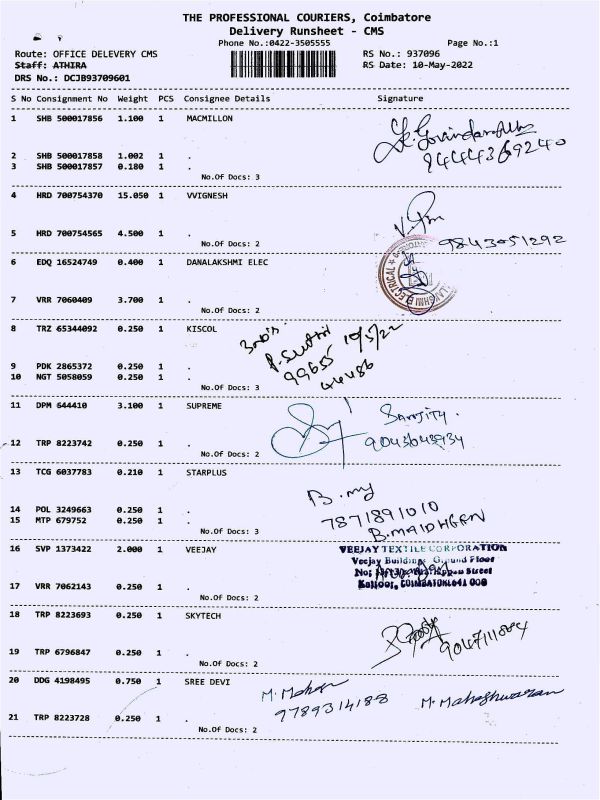 THE PROFESSIONAL COURIERS, Coimbatore
Delivery Runsheet - CMS
Phone No.:0422-3505555 Page No.:1
Route: OFFICE DELEVERY CMS RS No.: 937096
Staff: ATHIRA RS Date: 10-May-2022
DRS No.: DCJB93709601
S No Consignment No Weight PCS Consignee Details Signature
1 SHB 500017856 1.100 1 MACMILLON
2 SHB 500017858 1.002 1 .
9444369240
3 SHB 500017857 0.180 1 .
No.Of Docs: 3
4 HRD 700754370 15.050 1 VVIGNESH
5 HRD 700754565 4.500 1 .
9843051292
No.Of Docs: 2
6 EDQ 16524749 0.400 1 DANALAKSHMI ELEC
7 VRR 7060409 3.700 1 .
No.Of Docs: 2
8 TRZ 65344092 0.250 1 KISCOL
10/5/22
99655
44486
9 PDK 2865372 0.250 1 .
10 NGT 5058059 0.250 1 .
No.Of Docs: 3
11 DPM 644410 3.100 1 SUPREME
12 TRP 8223742 0.250 1 .
No.Of Docs: 2
13 TCG 6037783 0.210 1 STARPLUS
14 POL 3249663 0.250 1 .
7871891010
15 MTP 679752 0.250 1 .
No.Of Docs: 3
16 SVP 1373422 2.000 1 VEEJAY
VEEJAY TEXTILE CORPORATION
Veejay Buildings Ground Floor
Street
Kattoor, COIMBATORE-641 009
17 VRR 7062143 0.250 1 .
No.Of Docs: 2
18 TRP 8223693 0.250 1 SKYTECH
19 TRP 6796847 0.250 1 .
No.Of Docs: 2
20 DDG 4198495 0.750 1 SREE DEVI
M. Mohan
9789314188 M. Maheshwaran
21 TRP 8223728 0.250 1 .
No.Of Docs: 2